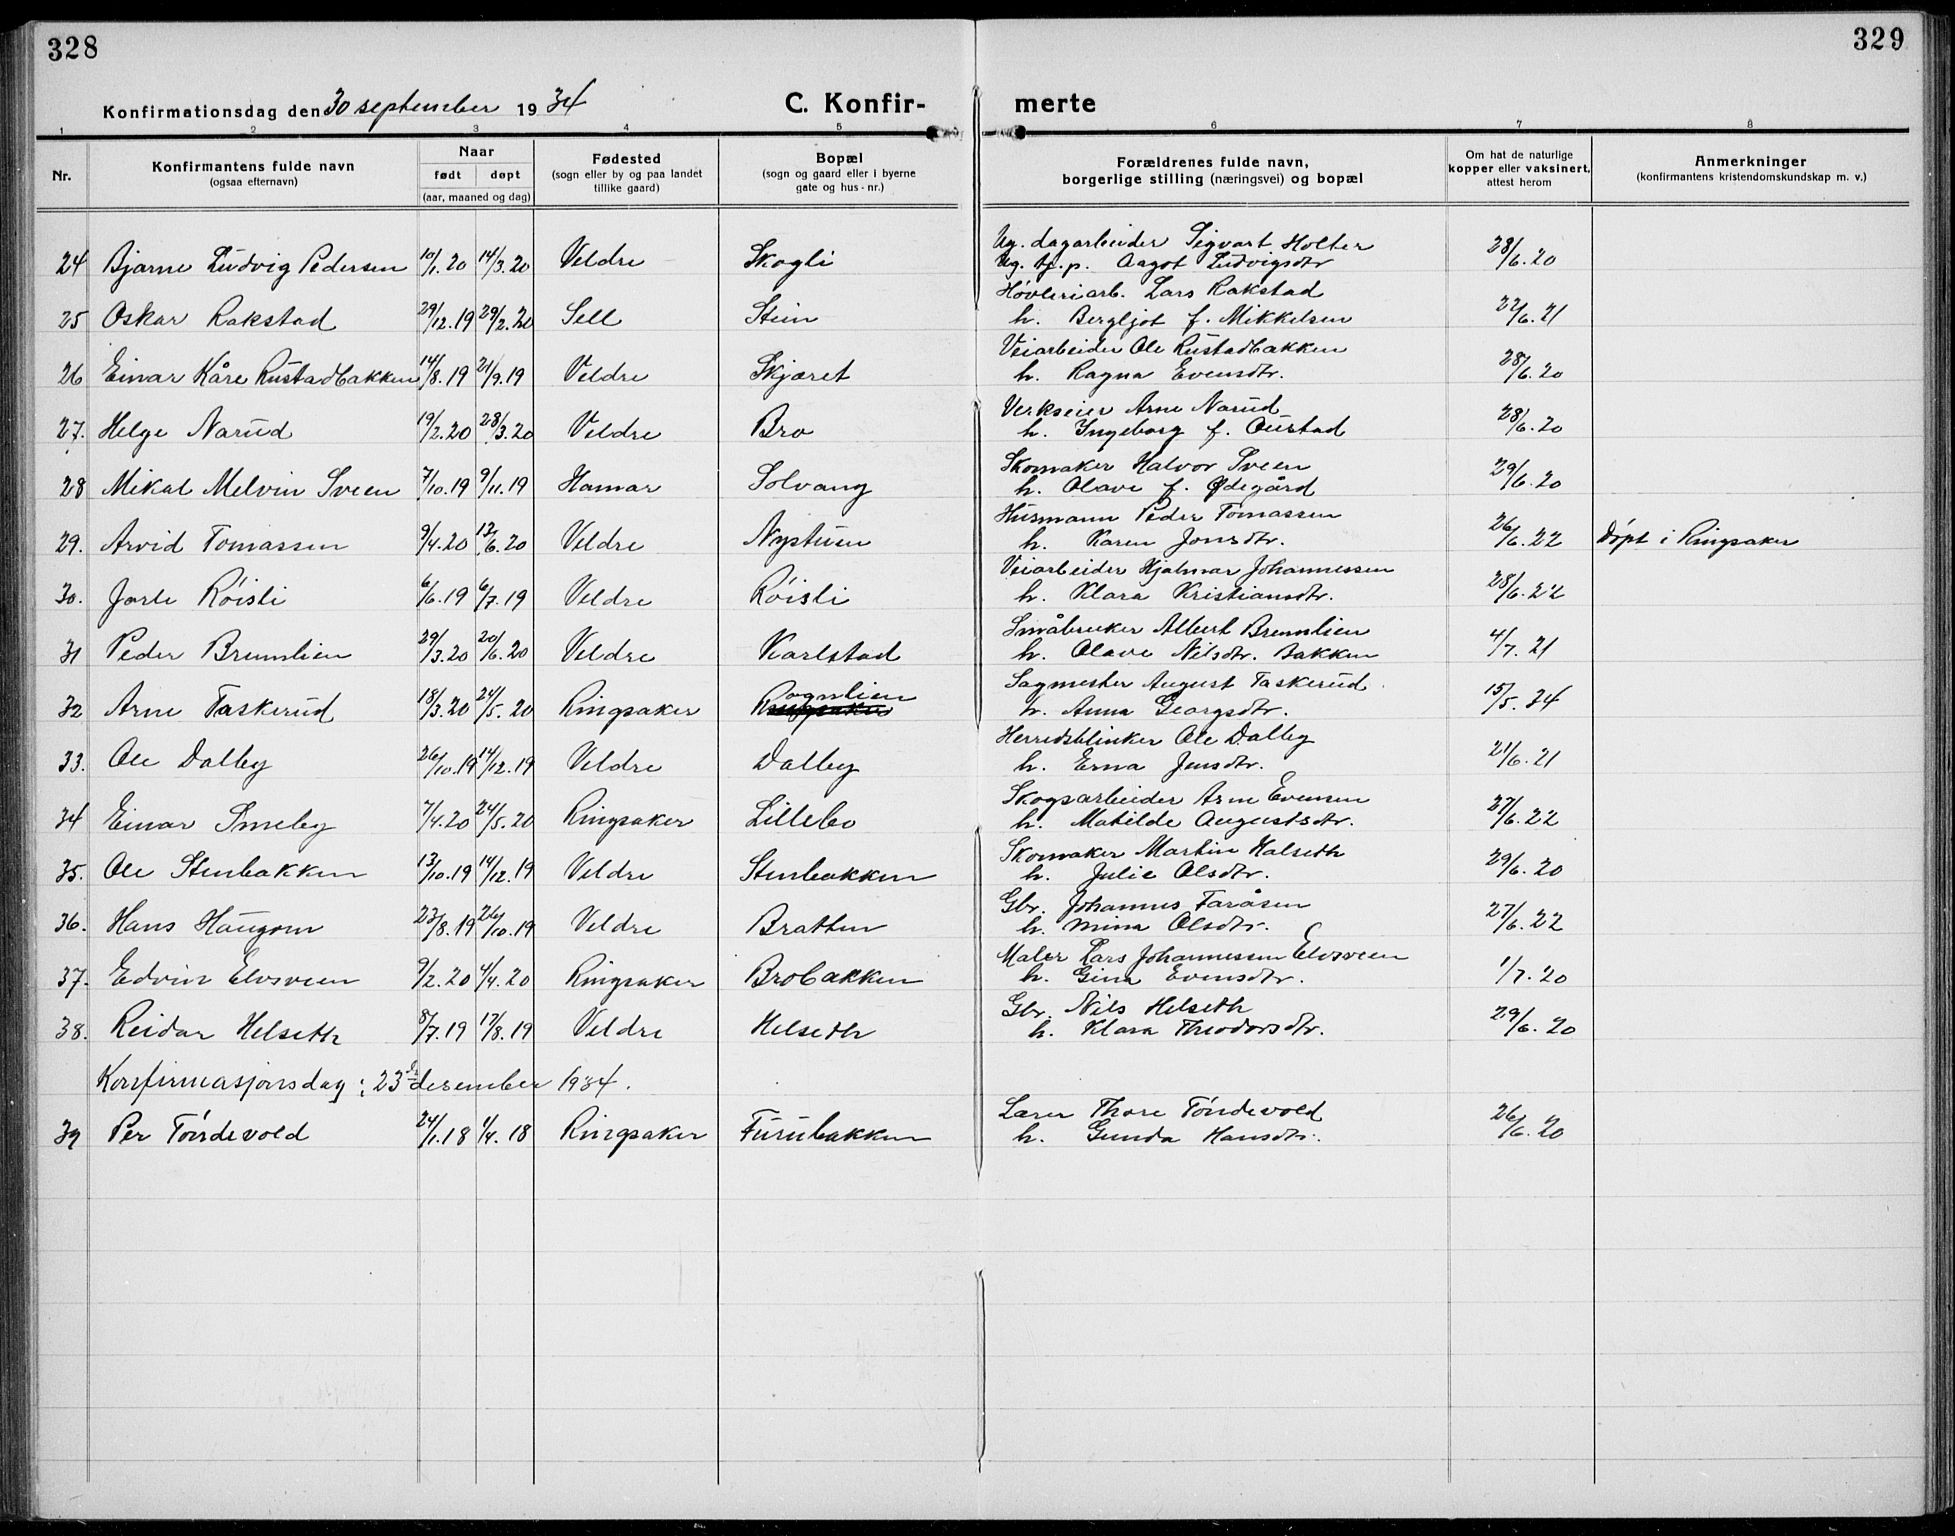 328
329
Konfirmationsdag den 30 september 1934
C. Konfir-merte
1 2 3 4 5 6 7 8
Nr. | Konfirmantens fulde navn (ogsaa efternavn) | Naar født døpt (aar, maaned og dag) | Fødested (sogn eller by og paa landet tillike gaard) | Bopæl (sogn og gaard eller i byerne gate og hus-nr.) | Forældrenes fulde navn, borgerlige stilling (næringsvei) og bopæl | Om hat de naturlige kopper eller vaksinert, attest herom | Anmerkninger (konfirmantens kristendomskundskap m. v.)
24 Bjarne Ludvig Pedersen 10/1.20 14/3.20 Veldre Skogli Ug. dagarbeider Sigvart Holter 28/6.20
Ug. tj.p. Aagot Ludvigsdtr
25 Oskar Rakstad 29/12.19 29/2.20 Sell Stein Høvleriarb. Lars Rakstad 22/6.21
h. Bergljot f. Mikkelsen
26 Einar Kåre Rustadbakken 14/8.19 21/9.19 Veldre Skjæret Veiarbeider Ole Rustadbakken 28/6.20
h. Ragna Evensdtr.
27. Helge Narud 19/2.20 28/3.20 Veldre Bro Verkseier Arne Narud 28/6.20
h. Ingeborg f. Oustad
28 Mikal Melvin Sveen 7/10.19 9/11.19 Hamar Solvang Skomaker Halvor Sveen 29/6.20
h. Olave f. Ødegård
29. Arvid Tomassen 9/4.20 13/6.20 Veldre Nystuen Husmann Peder Tomassen 26/6.22 Døpt i Ringsaker
h. Karen Jonsdtr.
30. Jarle Røisli 6/6.19 6/7.19 Veldre Røisli Veiarbeider Hjalmar Johannessen 28/6.22
h. Klara Kristiansdtr.
31 Peder Bremlien 29/3.20 20/6.20 Veldre Karlstad Småbruker Albert Bremlien 4/7.21
h. Olave Nilsdtr. Bakken
32 Arne Taskerud 18/3.20 24/5.20 Ringsaker Rognlien Sagmester August Taskerud 15/5.34
h. Anna Georgsdtr.
33. Ole Dalby 26/10.19 14/12.19 Veldre Dalby Herredsblinker Ole Dalby 21/6.21
h. Erna Jensdtr.
34 Einar Smeby 7/4.20 24/5.20 Ringsaker Lillebo Skogsarbeider Arne Evensen 27/6.22
h. Matilde Augustsdtr.
35. Ole Stenbakken 13/10.19 14/12.19 Veldre Stenbakken Skomaker Martin Halseth 29/6.20
h. Julie Olsdtr.
36. Hans Haugom 23/8.19 26/10.19 Veldre Bratten Gbr. Johannes Faråsen 27/6.22
h. Mina Olsdtr.
37. Edvin Elvsveen 9/2.20 4/4.20 Ringsaker Brobakken Maler Lars Johannessen Elvsveen 1/7.20
h. Gina Evensdtr.
38. Reidar Helseth 8/7.19 17/8.19 Veldre Helseth Gbr. Nils Helseth 29/6.20
h. Klara Theodorsdtr.
Konfirmasjonsdag: 23de desember 1934.
39 Per Tøndevold 24/1.18 1/4.18 Ringsaker Furubakken Lærer Thore Tøndevold 26/6.20
h. Gunda Hansdtr.